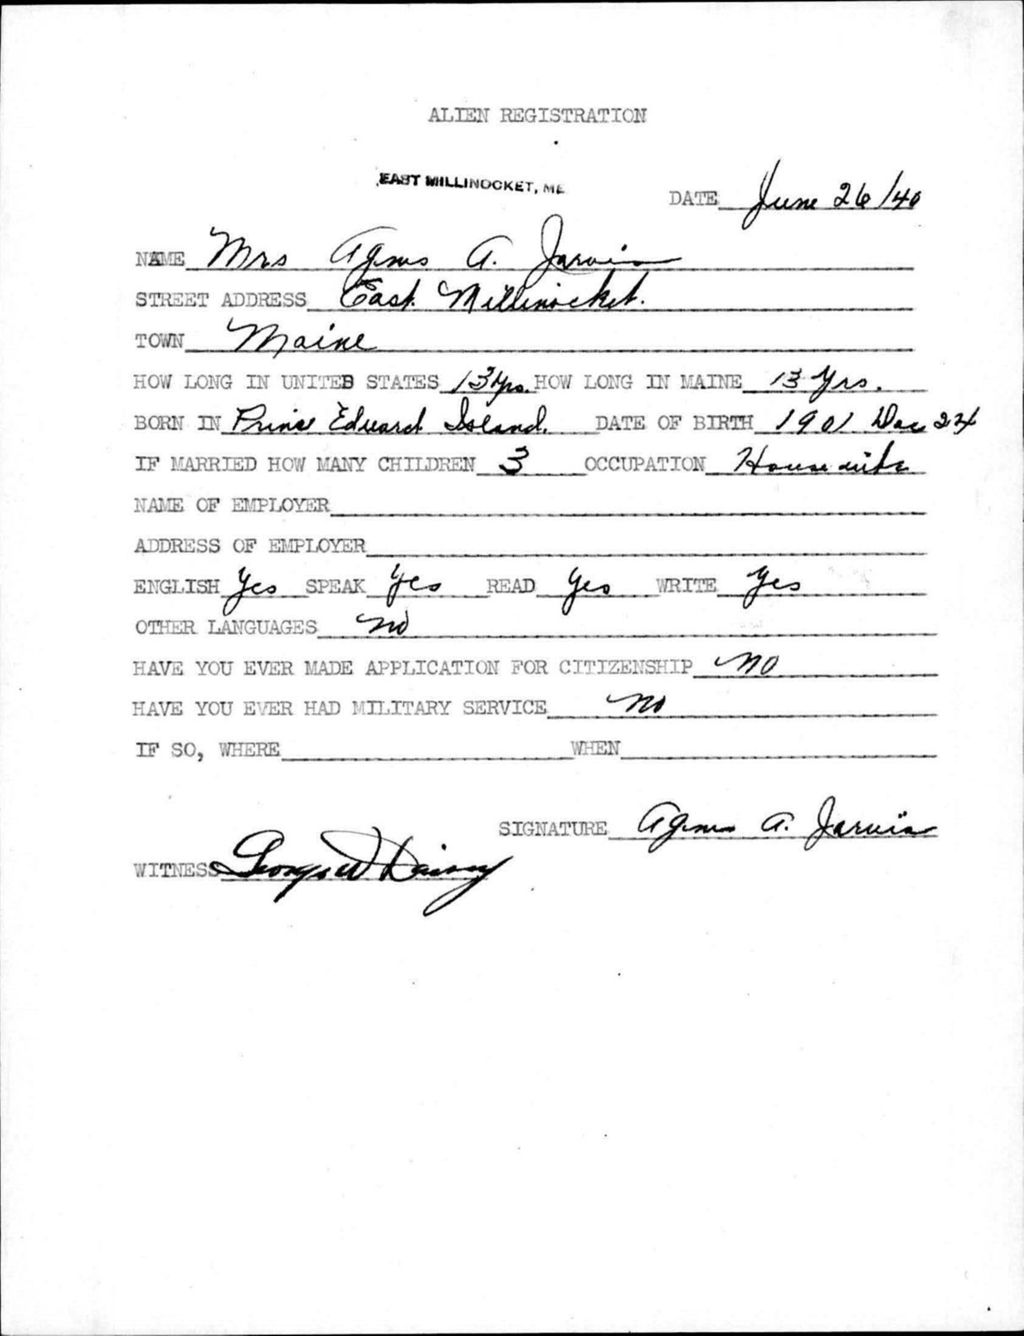 ALIEN REGISTRATION
EAST MILLINOCKET, ME
DATE June 26/40
NAME Mrs Agnes A. Jarvis
STREET ADDRESS East Millinocket.
TOWN Maine
HOW LONG IN UNITED STATES 13 yrs. HOW LONG IN MAINE 13 Yrs.
BORN IN Prince Edward Island. DATE OF BIRTH 1901 Dec 24
IF MARRIED HOW MANY CHILDREN 3 OCCUPATION Housewife
NAME OF EMPLOYER
ADDRESS OF EMPLOYER
ENGLISH Yes SPEAK Yes READ Yes WRITE Yes
OTHER LANGUAGES No
HAVE YOU EVER MADE APPLICATION FOR CITIZENSHIP NO
HAVE YOU EVER HAD MILITARY SERVICE No
IF SO, WHERE WHEN
SIGNATURE Agnes A. Jarvis
WITNESS George W